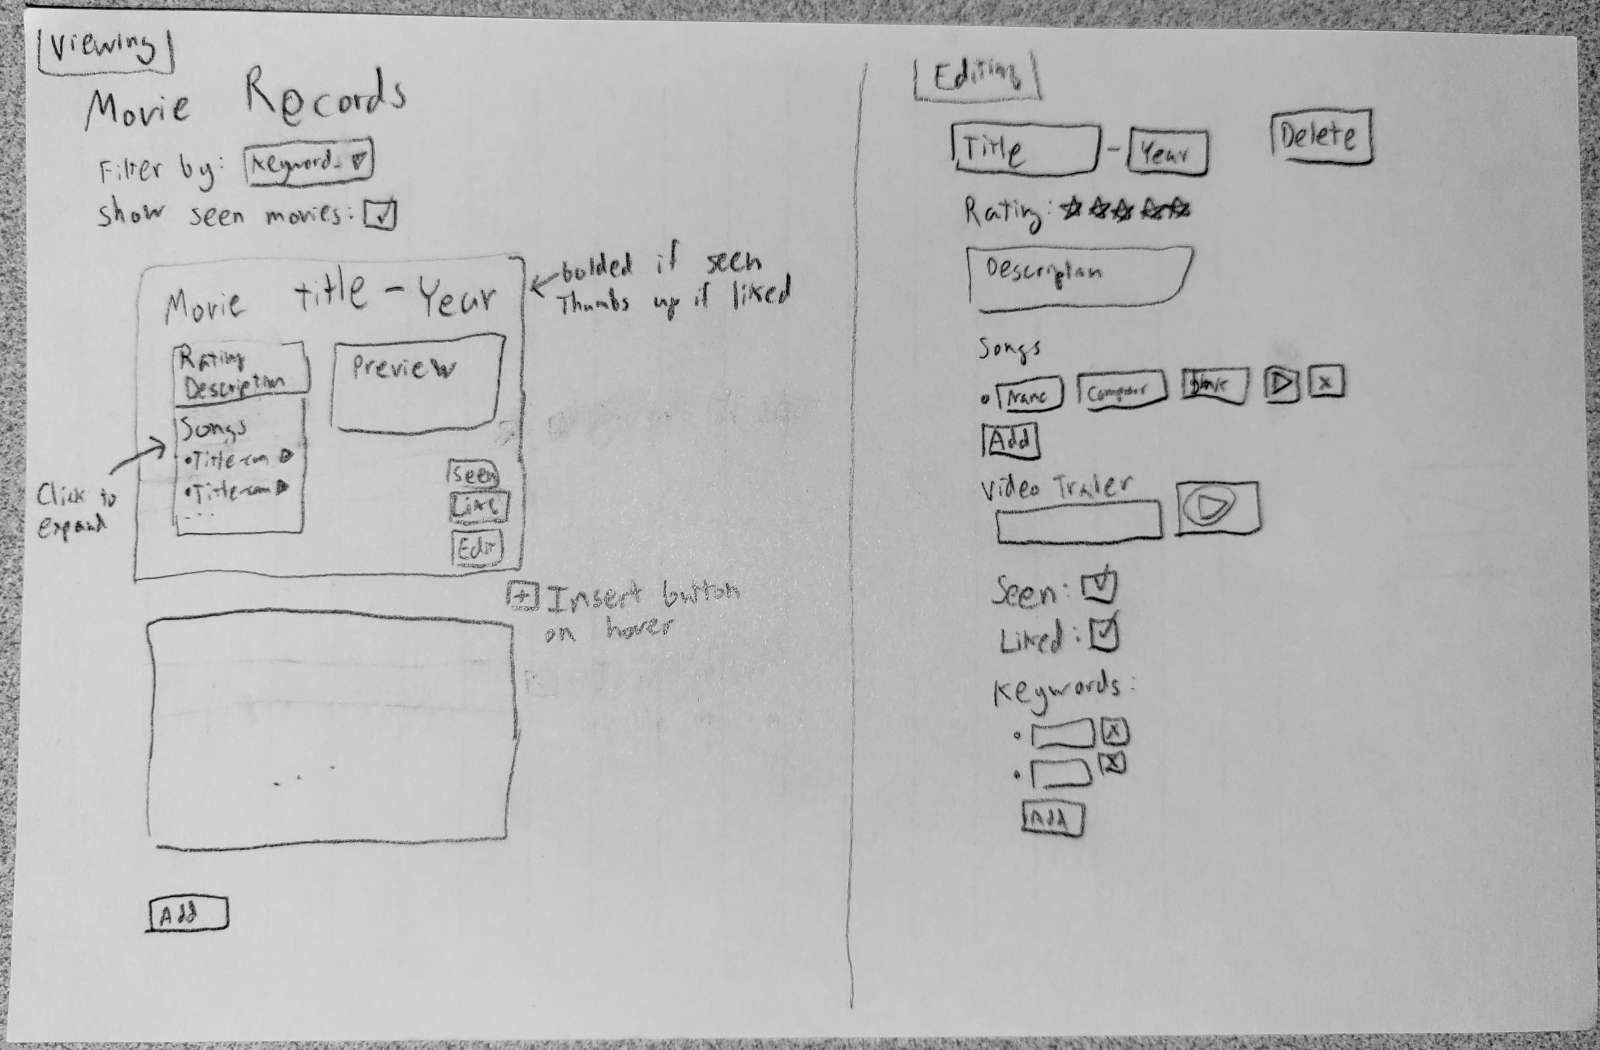 Viewing
Movie Records
Filter by: Keyword
Show seen movies:
bolded if seen
Thumbs up if liked
Movie title - Year
Rating
Description
Preview
Songs
• Title-com
• Title-com
...
Click to
expand
Seen
Like
Edit
+ Insert button
on hover
...
Add
Editing
Title - Year
Delete
Rating:
Description
Songs
• Name Composer x
Add
Video Trailer
Seen:
Liked:
Keywords:
• x
• x
Add